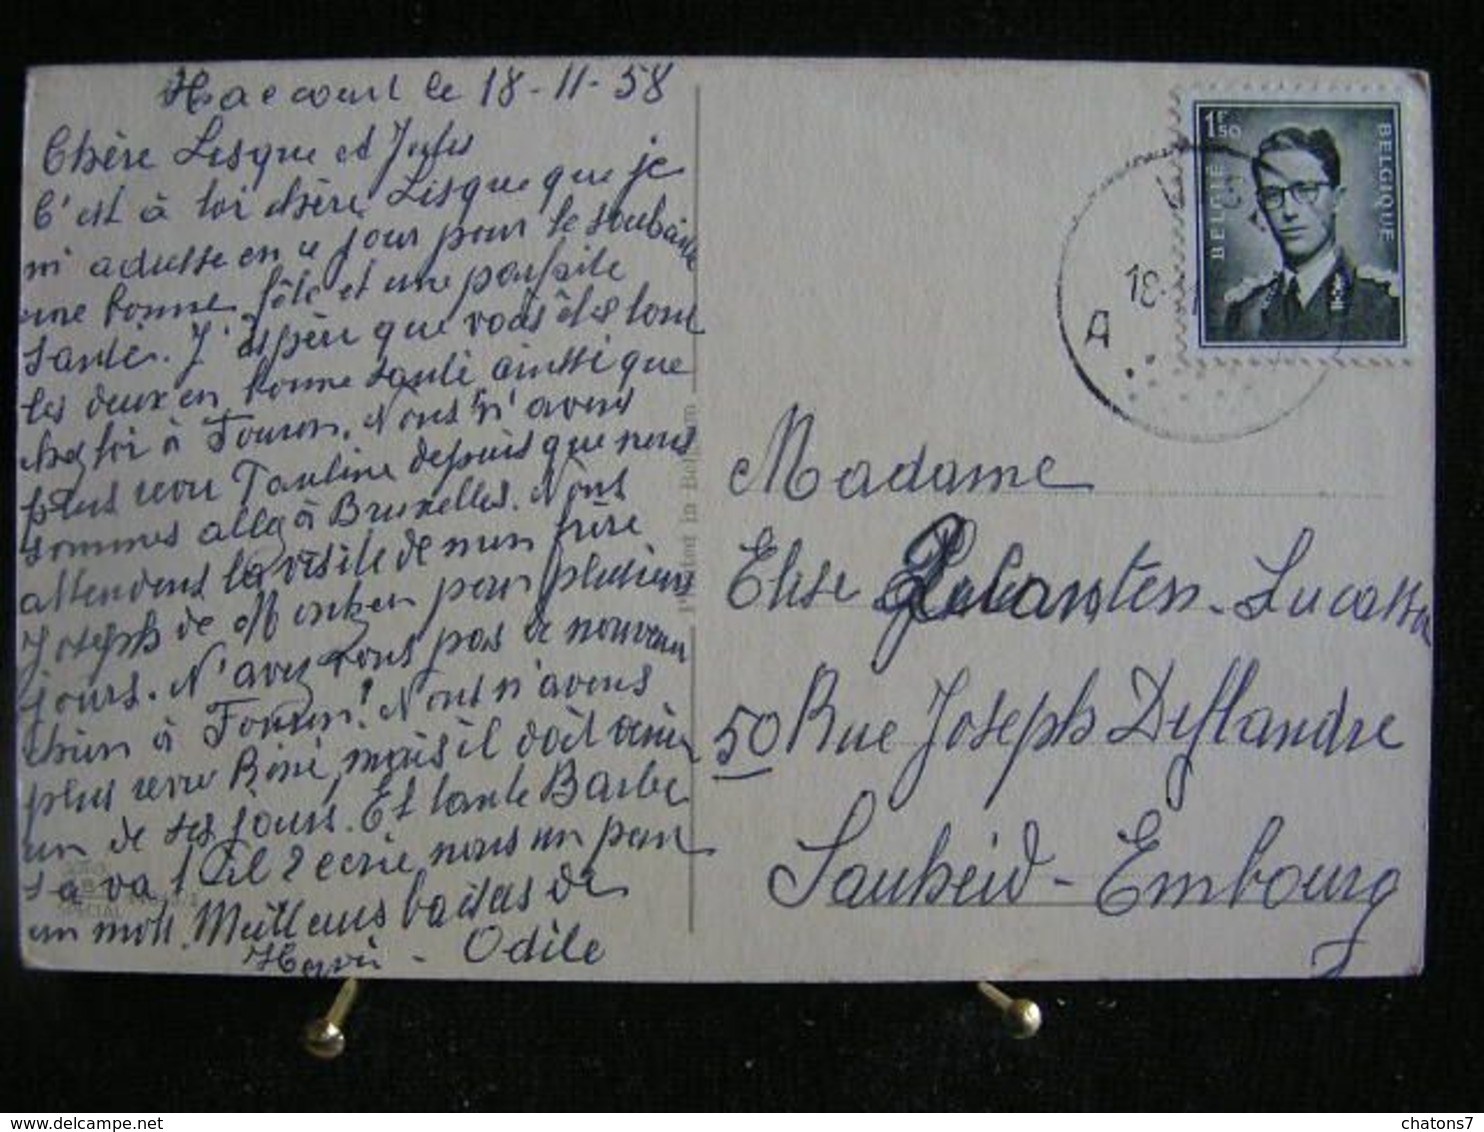 Haccourt le 18-11-58
Chère Lisque et Jules
C'est à toi chère Lisque que je
m'adresse en ce jour pour te souhaiter
une bonne fête et une parfaite
santé. J'espère que vous êtes tous
les deux en bonne santé ainssi que
chez toi à Fouron. Nous n'avons
plus revu Pauline depuis que nous
sommes allez à Bruxelles. Nous
attendons la visite de mon frère
Joseph de Montzen pour plusieurs
jours. N'avez vous pas de nouveau
chien à Fouron? Nous n'avons
plus revu René, mais il doit venir
un de ses jours. Et tante Barbe
sa va? Ecrie nous un peu
un mott. Meilleurs baisers de
Henri - Odile
Printed in Belgium
SPECIAL
1F50
BELGIE BELGIQUE
18
A
Madame
Elise Lucassen
50 Rue Joseph Deflandre
Sauheid - Embourg
delcampe.net
chatons7